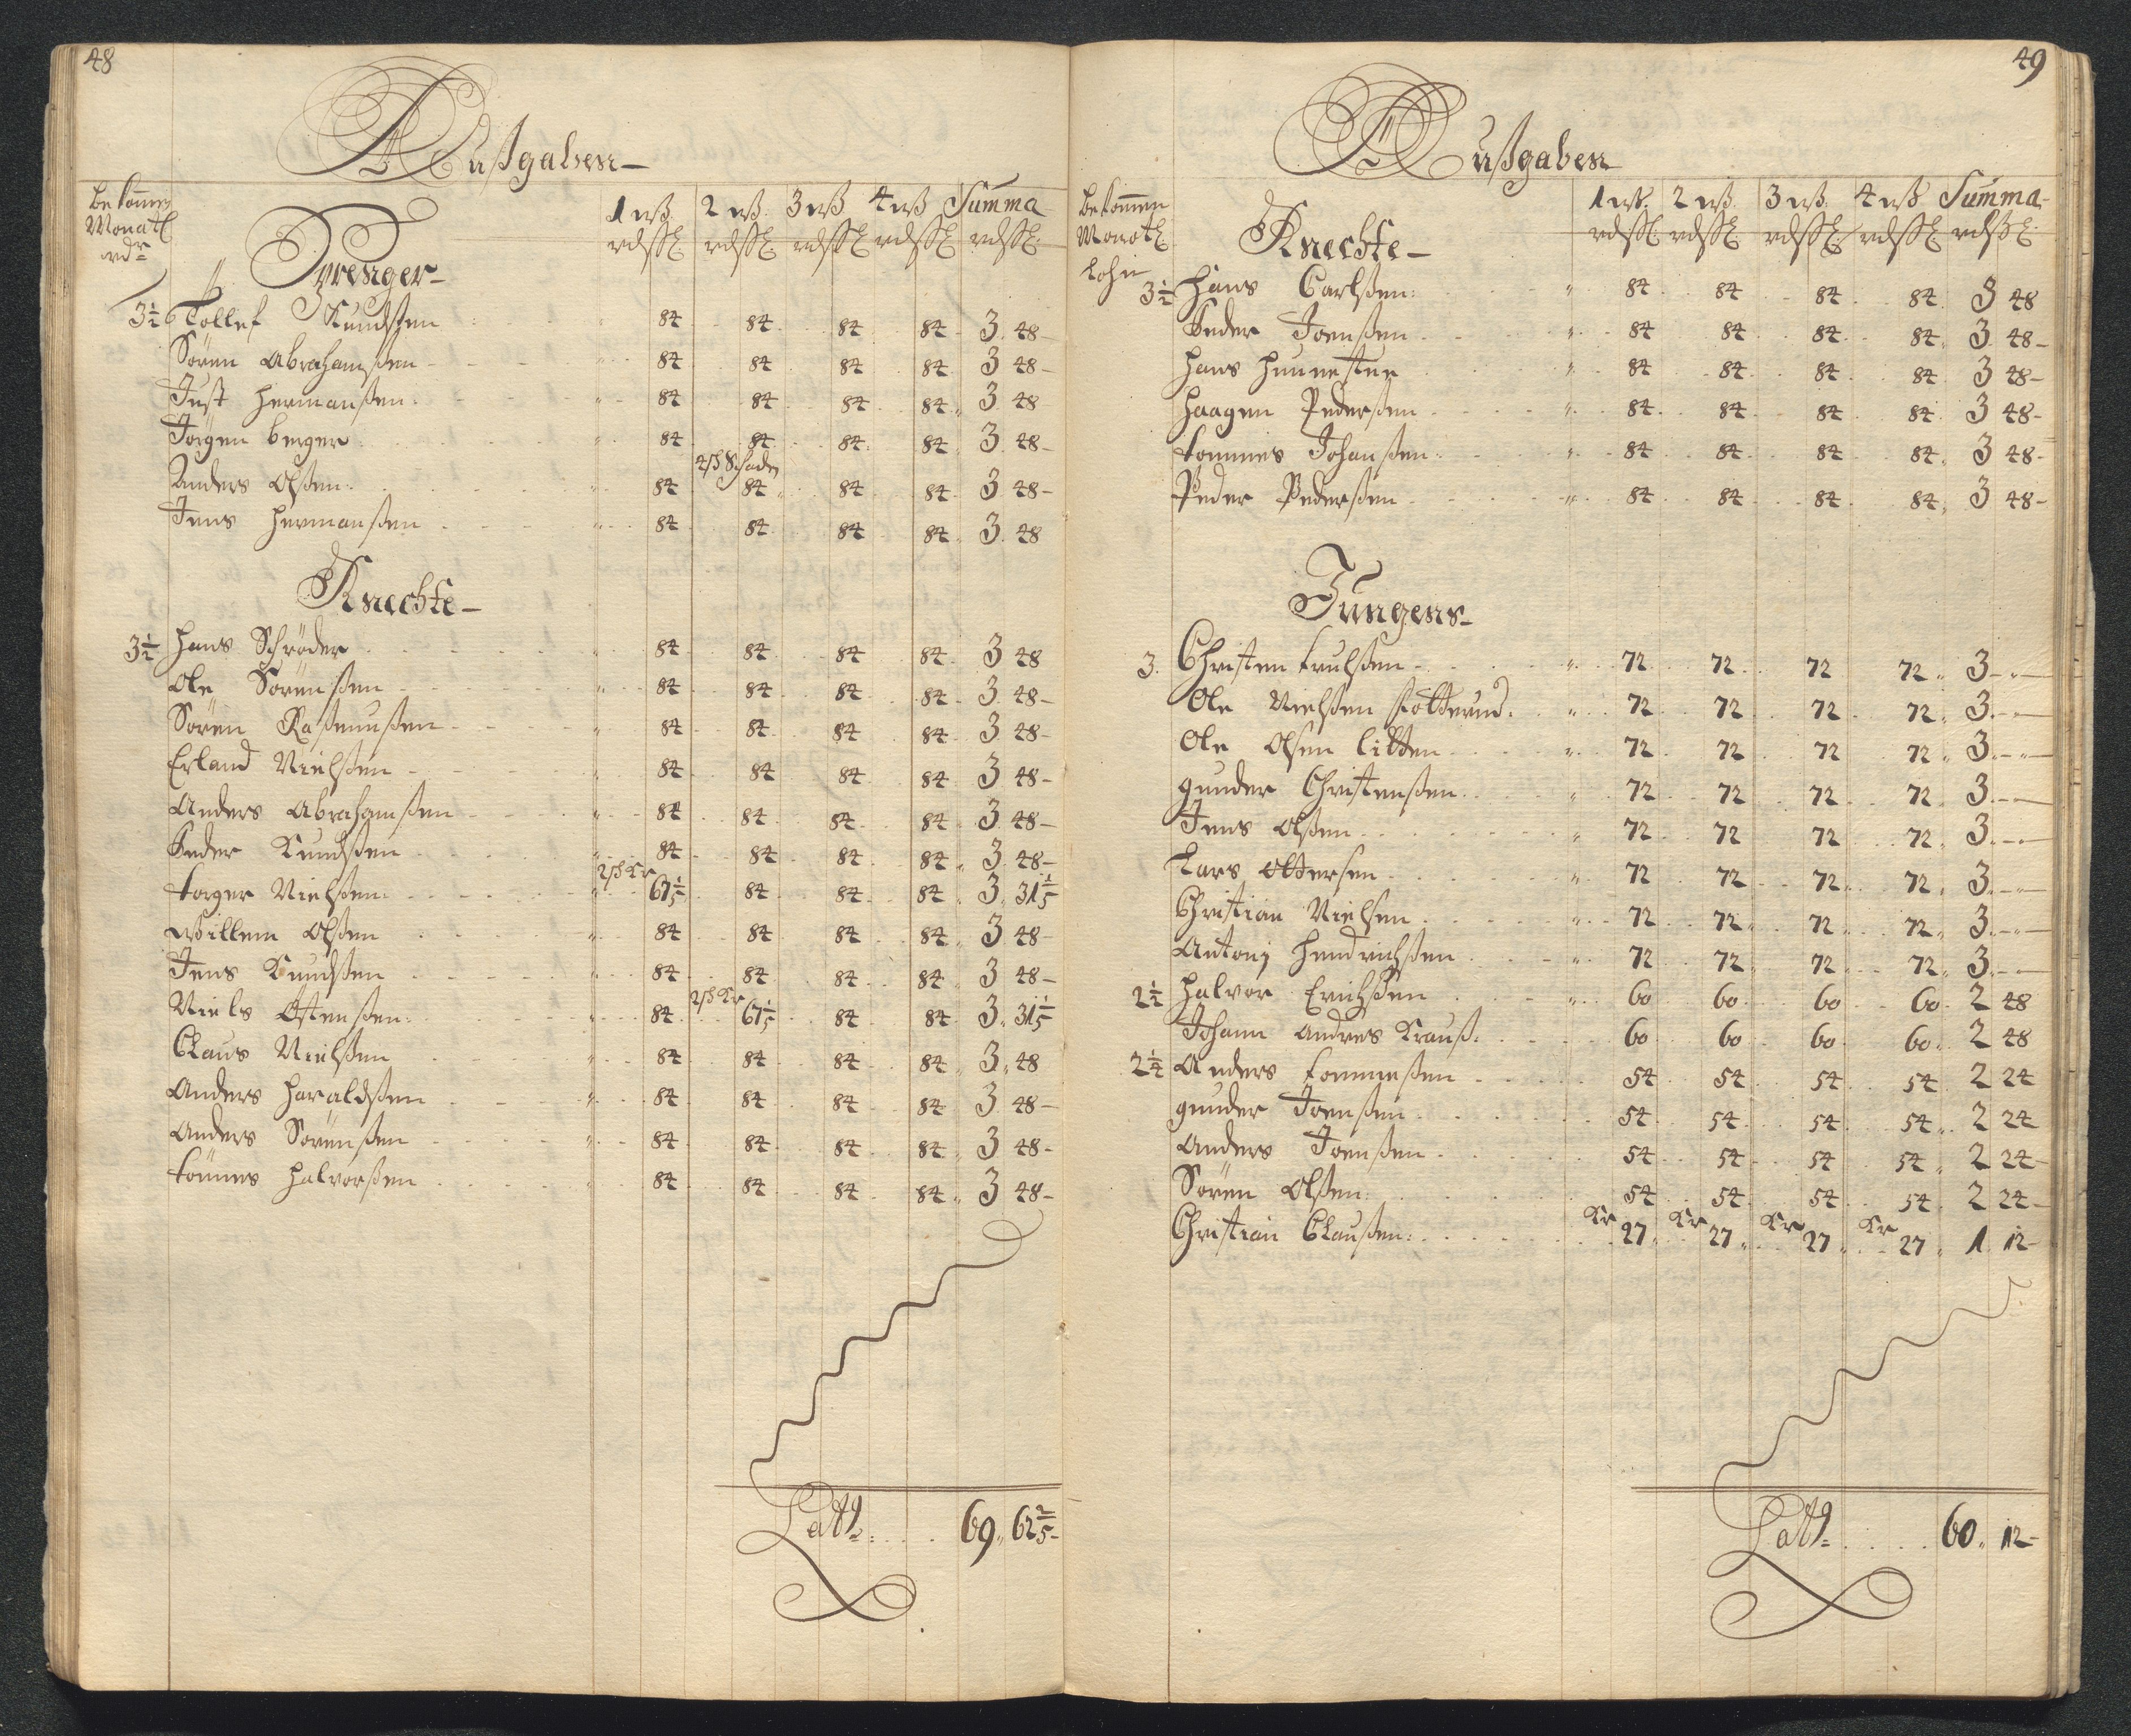 48
Außgaben
Bekommen
Monatl
rdr
1 wß. 2 wß. 3 wß 4 wß Summa
rdßl. rdßl. rdßl. rdßl. rdßl.
Sprenger
3½ Tollef Knudßen 84 84 84 84 3 48
Sören Abrahamßen 84 84 84 84 3 48
Just Hermanßen 84 84 84 84 3 48
Jörgen berger 84 84 84 84 3 48
Anders Olßen 84 84 84 84 3 48
Jens Hermanßen 84 84 84 84 3 48
Knechte
3½ Hans Schröder 84 84 84 84 3 48
Ole Sörenßen 84 84 84 84 3 48
Sören Raßmußen 84 84 84 84 3 48
Erland Nielßen 84 84 84 84 3 48
Anders Abrahamßen 84 84 84 84 3 48
Peder Knudßen 84 84 84 84 3 48
Torger Nielßen 67 1/5 84 84 84 3 31 1/5
Willem Olßen 84 84 84 84 3 48
Jens Knudßen 84 84 84 84 3 48
Niels Östenßen 84 67 1/5 84 84 3 31 1/5
Claus Nielßen 84 84 84 84 3 48
Anders Haraldßen 84 84 84 84 3 48
Anders Sörenßen 84 84 84 84 3 48
Tönnes Halvorßen 84 84 84 84 3 48
Latt: 69 62 2/5
49
Außgaben
Bekommen
Monatl
Lohn
1 wß. 2 wß. 3 wß. 4 wß Summa
rdßl. rdßl. rdßl. rdßl. rdßl.
Knechte
3½ Hans Carlßen 84 84 84 84 3 48
Peder Joenßen 84 84 84 84 3 48
Hans 84 84 84 84 3 48
Haagen Pederßen 84 84 84 84 3 48
Tommes Johanßen 84 84 84 84 3 48
Peder Pederßen 84 84 84 84 3 48
Jungens
3. Christen Trulßen 72 72 72 72 3 –
Ole Nielßen 72 72 72 72 3 –
Ole Olsen 72 72 72 72 3 –
gunder Christenßen 72 72 72 72 3 –
Jens Olßen 72 72 72 72 3 –
Lars Ottersen 72 72 72 72 3 –
Christian Nielsen 72 72 72 72 3 –
Antonj Hendrichßen 72 72 72 72 3 –
2½ Halvor Erichßen 60 60 60 60 2 48
Johann Andres Krauß 60 60 60 60 2 48
2¼ Anders Tommeßen 54 54 54 54 2 24
gunder Joenßen 54 54 54 54 2 24
Anders Joenßen 54 54 54 54 2 24
Sören Olßen 54 54 54 54 2 24
Christian Claußen Kr 27 Kr 27 Kr 27 Kr 27 1 12
Latt: 60 12